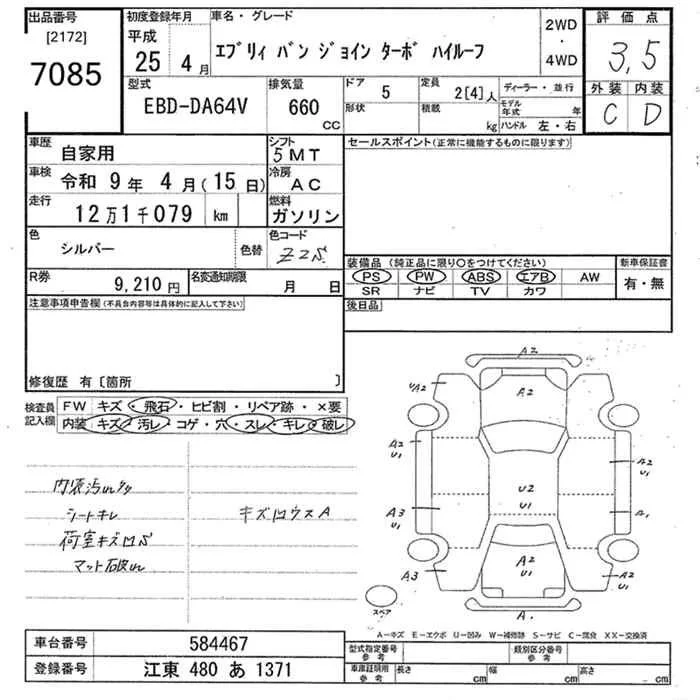 出品番号
[2172]
7085
初度登録年月
平成
25 4 月
車名・グレード
エブリィ バン ジョイン ターボ ハイルーフ
2WD
・
4WD
評価点
3,5
外装 内装
C D
型式
EBD-DA64V
排気量
660
CC
ドア 5
形状
定員 2[4]人
積載 kg
ディーラー・並行
モデル年式 年
ハンドル 左・右
車歴 自家用
シフト 5MT
車検 令和 9年 4月(15日)
冷房 AC
走行 12万1千079 km
燃料 ガソリン
色 シルバー 色替
色コード Z2S
R券 9,210円
名変通知期限 月 日
セールスポイント(正常に機能するものに限ります)
装備品(純正品に限り○をつけてください)
PS PW ABS エアB AW
SR ナビ TV カワ
新車保証書
有・無
後日品
注意事項申告欄(不具合内容等は具体的に記入して下さい)
修復歴 有〔箇所 〕
検査員記入欄
FW キズ・飛石・ヒビ割・リペア跡・×要
内装 キズ・汚レ・コゲ・穴・スレ・キレ・破レ
シートキレ
荷室キズ
マット破れ
A2
A2
A2
U1
A2
U1
A2
U1
U2
U1
A3
U1
A1
A2
U1
A3
A2
U1
A
スペア
A-キズ E-エクボ U-凹み W-補修跡 S-サビ C-腐食 XX-交換済
車台番号 584467
登録番号 江東 480 あ 1371
型式指定番号 参考
類別区分番号 参考
車庫証明用 参考
長さ cm 幅 cm 高さ cm